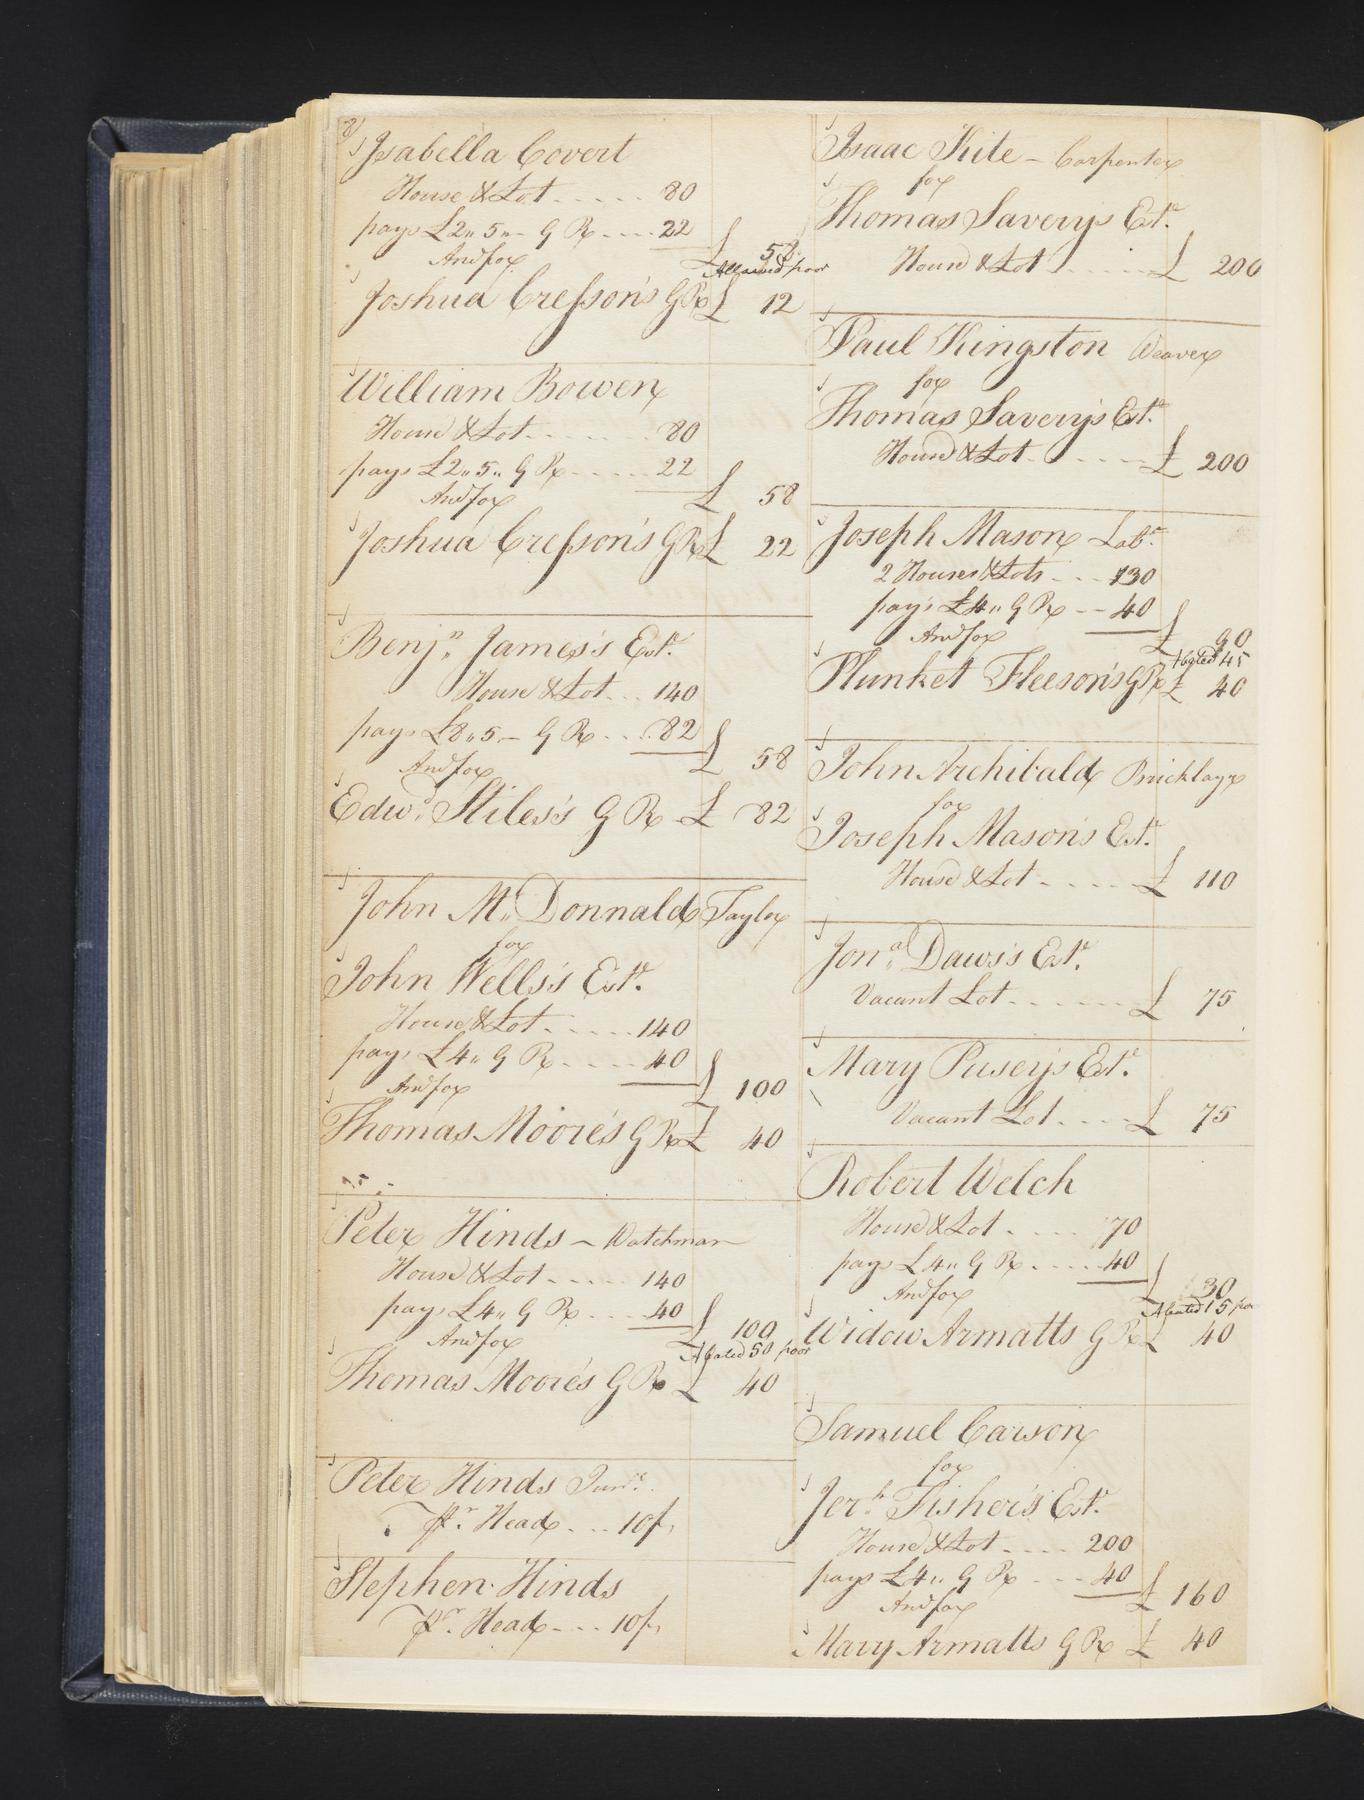 8
Isabella Covert
House & Lot ..... 80
pays £2,, 5,,- G R .... 22
£ 58
And for
Allowed poor
Joshua Cresson's G R £ 12
William Bowen
House & Lot ....... 80
pays £2,, 5,, G R ..... 22
£ 58
And for
Joshua Cresson's G R £ 22
Benjn. James's Estr.
House & Lot ... 140
pays £8,, 5,- G R .... 82
£ 58
And for
Edwd. Stiles's G R - £ 82
John Mc. Donnald Taylor
for
John Wells's Estr.
House & Lot ..... 140
pays £4,, G R ..... 40
£ 100
And for
Thomas Moore's G R £ 40
Peter Hinds - Watchman
House & Lot ..... 140
pays £4,, G R .... 40
£ 100
And for
Abated 50 poor
Thomas Moore's G R £ 40
Peter Hinds Junr.
Pr. Head .... 10/,
Stephen Hinds
Pr. Head .... 10/,
Isaac Kite - Carpenter
for
Thomas Savery's Estr.
House & Lot ...... £ 200
Paul Kingston Weaver
for
Thomas Savery's Estr.
House & Lot ...... £ 200
Joseph Mason Labr.
2 Houses & Lots ... 130
pays £4,, G R -- 40
£ 90
And for
Abated 45
Plunket Fleeson's G R £ 40
John Archibald Bricklayr
for
Joseph Mason's Estr.
House & Lot ..... £ 110
Jona. Daws's Estr.
Vacant Lot ....... £ 75
Mary Pusey's Estr.
Vacant Lot .... £ 75
Robert Welch
House & Lot ..... 70
pays £4,, G R ..... 40
£ 30
And for
Abated 15 poor
Widow Armatts G R £ 40
Samuel Carson
for
Jerh. Fisher's Estr.
House & Lot ..... 200
pays £4,, G R .... 40
£ 160
And for
Mary Armatts G R £ 40